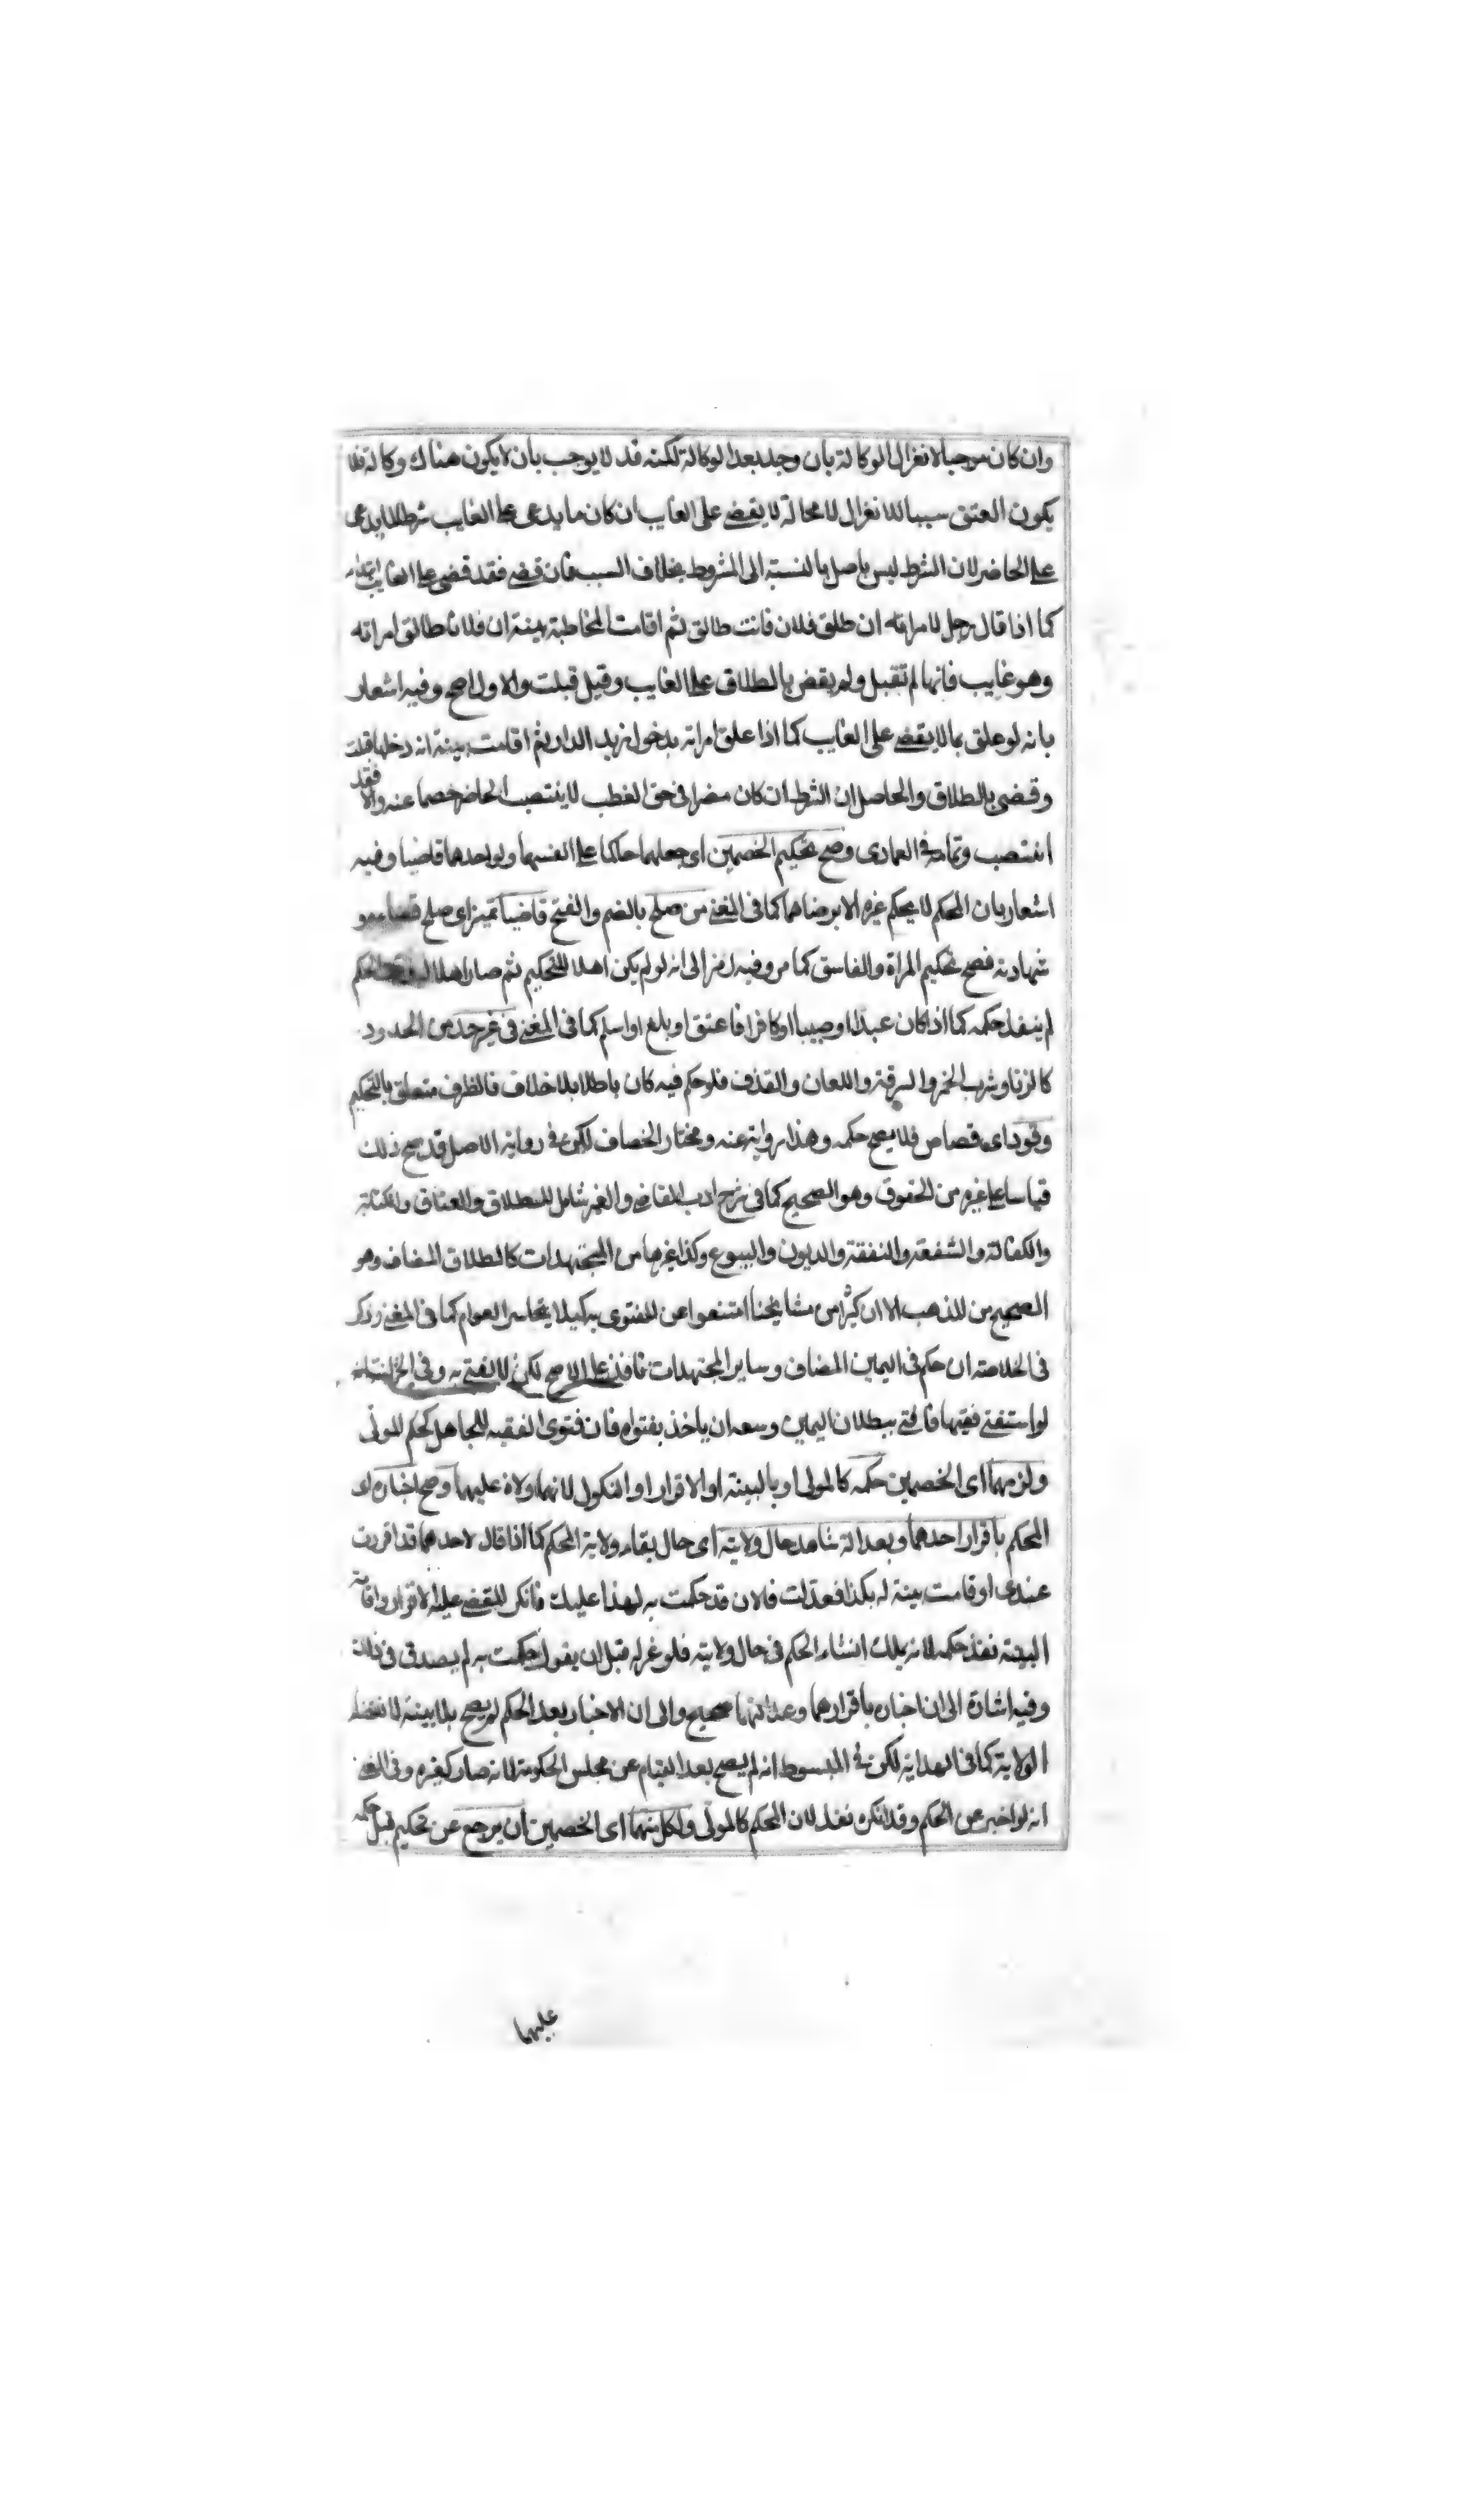 وان كان موجبا لانعزال الوكالة بان وجد بعد الوكالة لكنه قد لا يوجب بان لا يكون هناك وكالة فلا
يكون العتق سببا للانعزال لا محالة لا يقضى على الغايب ان كان ما يدعى على الغايب شرطا لما يدعى
على الحاضر لان الشرط ليس باصل بالنسبة الى المشروط بخلاف السبب فان قضى فقد قضى على الغايب ابتداء
كما اذا قال رجل لامراته ان طلق فلان فانت طالق ثم اقامت المخاطبة بينة ان فلانا طالق امراته
وهو غايب فانها لم تقبل ولم يقض بالطلاق على الغايب وقيل قبلت والاول اصح وفيه اشعار
بانه لو علق بما لا يقضى على الغايب كما اذا علق امراته بدخول زيد الدار ثم اقامت بينة انه دخلها قبلت
وقضى بالطلاق والحاصل ان الشرط ان كان مضرا فى حق الغطب لا ينتصب الحاضر خصما عنه والا فقد
انتصب وتمامه فى العمادى وصح تحكيم الخصمين اى جعلهما حاكما على انفسهما ولو احدهما قاضيا وفيه
اشعار بان المحكم لا يحكم غيره الا برضاهما كما فى المغنى من صلح بالضم والفتح قاضيا تميز اى صلح
شهادته فصح تحكيم المراة والفاسق كما مر وفيه رمز الى انه لو لم يكن اهلا للتحكيم ثم صار اهلا الحكم
لم ينفذ حكمه كما اذا كان عبدا او صبيا او كافرا فاعتق او بلغ او اسلم كما فى المغنى فى غير حد من الحدود
كالزنا وشرب الخمر والسرقة واللعان والقذف فلو حكم فيه كان باطلا بلا خلاف فالظرف متعلق بالتحكيم
وقود اى قصاص فلا يصح حكمه وهذا رواية عنه ومختار الخصاف لكن فى رواية الاصل قد صح ذلك
قياسا على غيره من الحقوق وهو الصحيح كما فى شرح ادب القاضى والغير شامل للطلاق والعتاق والكتابة
والكفالة والشفعة والنفقة والديون والبيوع وكذا غيرها من المجتهدات كالطلاق المضاف وهو
الصحيح من المذهب الا ان كثيرا من مشايخنا امتنعوا عن الفتوى به كيلا يتجاسر العوام كما فى المغنى وذكر
فى الخلاصة ان حكم فى اليمين المضاف وساير المجتهدات نافذ على الاصح لكن لا يفتى به وفى الخزانة انه
لو استفتى فقيها فافتى ببطلان اليمين وسعه ان ياخذ بفتواه فان فتوى الفقيه للجاهل كحكم المولى
ولزمهما اى الخصمين حكمه كالمولى او بالبينة او الاقرار او النكول لانهما ولاه عليهما وصح اخباره اى
المحكم باقرار احدهما وبعدالة شاهد حال ولايته اى حال بقاء ولاية المحكم كما اذا قال لاحدهما قد اقررت
عندى او قامت بينة له بكذا فعدلت فالان قد حكمت به لهذا عليك فانكر المقضى عليه الاقرار واقامة
البينة نفذ حكمه لانه يملك انشاء الحكم فى حال ولايته فلو عزله قبل ان يقول حكمت به لم يصدق فى ذلك
وفيه اشارة الى ان اخباره باقرارهما وعدالتهما صحيح والى ان الاخبار بعد الحكم لم يصح بلا بينة لانقضاء
الولاية كما فى الهداية لكن فى المبسوط انه لم يصح بعد القيام عن مجلس الحكومة لانه صار كغيره وفى المغنى
انه لو اخبر عن الحكم وقد انكره نفذ لان المحكم كالمولى ولكل منهما اى الخصمين ان يرجع عن تحكيم قبل حكمه
عليهما